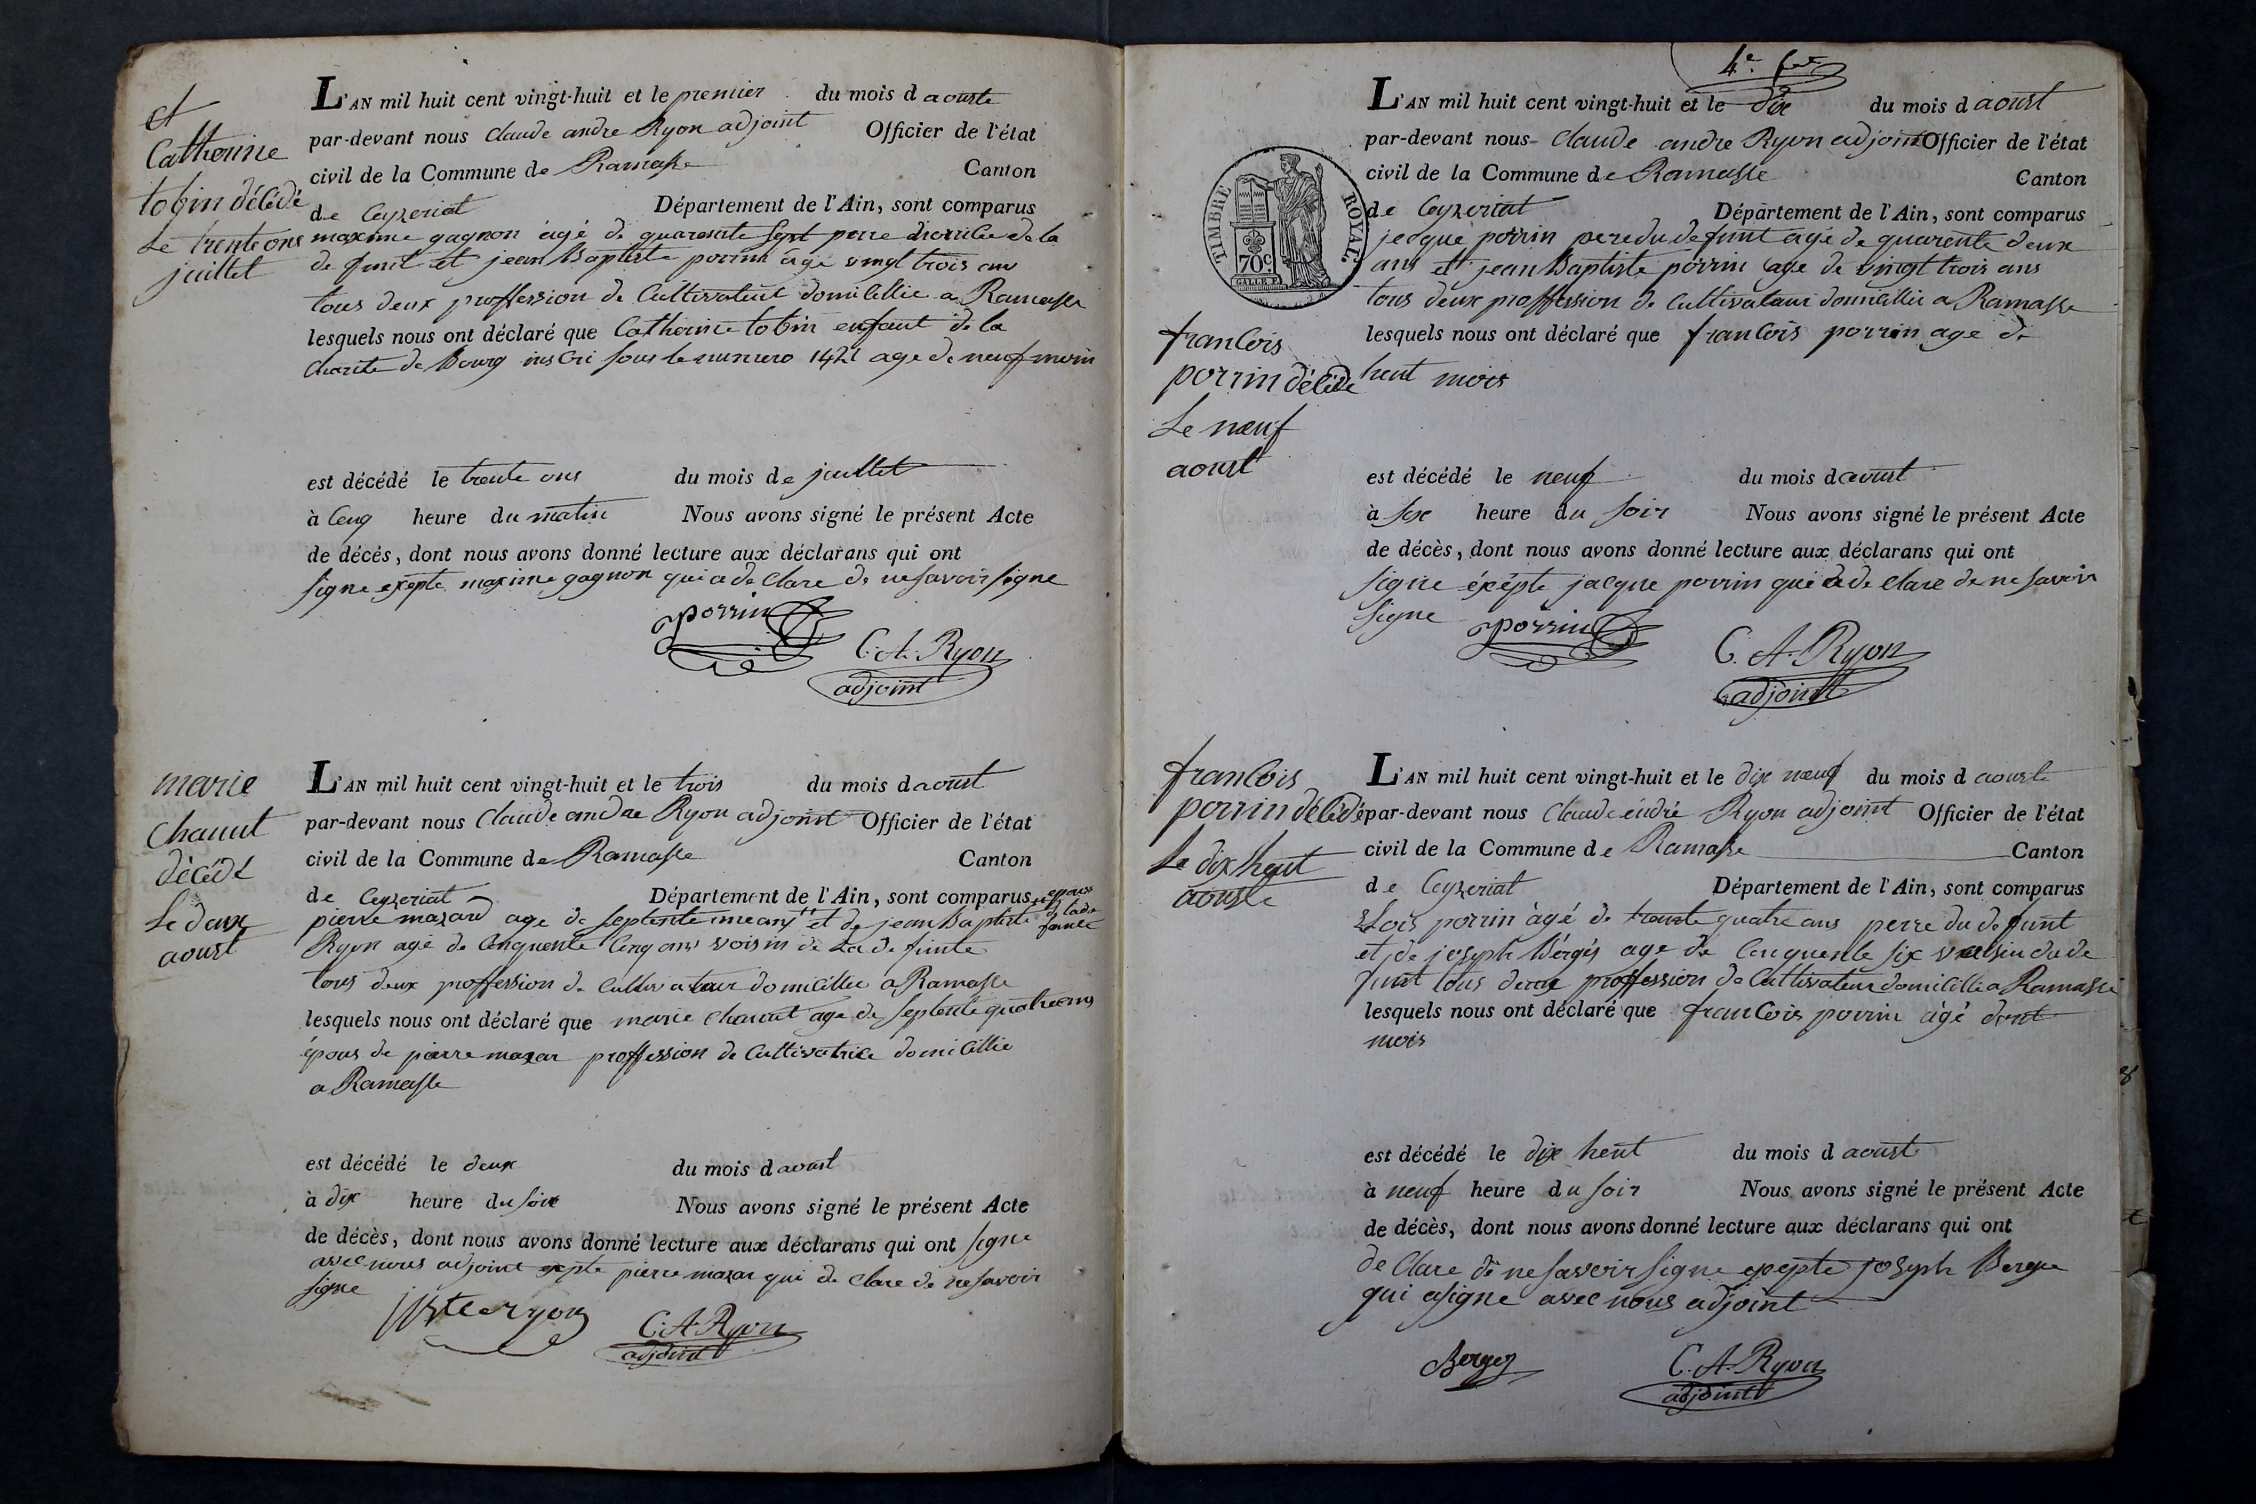 et
Catherine
tobin décédé
Le trente ons
juillet
L'AN mil huit cent vingt-huit et le premier du mois d aouste
par-devant nous Claude andre Ryon adjoint Officier de l'état
civil de la Commune de Ramasse Canton
de Ceyzeriat Département de l'Ain, sont comparus
maxime gagnon agé de quarente sept perre de la
de funt et jean Baptiste porrin agé vingt trois ans
tous deux proffession de Cultivateur domicillié a Ramasse
lesquels nous ont déclaré que Catherine tobin enfant de la
charite de Bourg inscri sous le numero 1421 age de neuf moin
est décédé le trente ons du mois de juillet
à Cenq heure du matin Nous avons signé le présent Acte
de décès, dont nous avons donné lecture aux déclarans qui ont
signe exepte maxime gagnon qui a de Clare de ne savoir signe
porrin
C. A. Ryon
adjoint
marie
Chanut
décédé
Le deux
aoust
L'AN mil huit cent vingt-huit et le trois du mois d aoust
par-devant nous Claude andre Ryon adjoint Officier de l'état
civil de la Commune de Ramasse Canton
de Ceyzeriat Département de l'Ain, sont comparus
pierre mazard age de septente ans et de jean Baptiste
Ryon agé de Cenquente Cenq ans voisin de La de funte
tous deux proffession de Cultivateur domicillié a Ramasse
lesquels nous ont déclaré que marie Chanut age de septente quatre ans
épous de pierre mazar proffession de Cultivatrice domicillié
a Ramasse
est décédé le deux du mois d aoust
à dix heure du soir Nous avons signé le présent Acte
de décès, dont nous avons donné lecture aux déclarans qui ont signe
avec nous adjoint exepte pierre mazar qui de clare de ne savoir
signe
ryon
C. A. Ryon
adjoint
4e. fet
TIMBRE ROYAL
70c
francois
porrin décédé
Le neuf
aoust
L'AN mil huit cent vingt-huit et le dix du mois d aoust
par-devant nous Claude andre Ryon adjoint Officier de l'état
civil de la Commune de Ramasse Canton
de Ceyzeriat Département de l'Ain, sont comparus
jacque porrin pere du defunt agé de quarente deux
ans et jean Baptiste porrin age de vingt trois ans
tous deux proffession de Cultivateur domicillié a Ramasse
lesquels nous ont déclaré que francois porrin age de
heut mois
est décédé le neuf du mois d aoust
à six heure du soir Nous avons signé le présent Acte
de décès, dont nous avons donné lecture aux déclarans qui ont
signe éxépte jacque porrin qui a de clare de ne savoir
signe
porrin
C. A. Ryon
adjoint
francois
porrin décédé
Le dix heut
aouste
L'AN mil huit cent vingt-huit et le dix neuf du mois d aouste
par-devant nous Claude éndré Ryon adjoint Officier de l'état
civil de la Commune de Ramasse Canton
de Ceyzeriat Département de l'Ain, sont comparus
Lois porrin àgé de trente quatre ans perre du de funt
et de joseph Bergé age de Cenquente six voisin du de
funt tous deux proffession de Cultivateur domicillie a Ramasse
lesquels nous ont déclaré que francois porrin àgé dont
mois
est décédé le dix heut du mois d aoust
à neuf heure du soir Nous avons signé le présent Acte
de décès, dont nous avons donné lecture aux déclarans qui ont
de Clare de ne savoir signe exepte joseph Berge
qui a signe avec nous adjoint
Berger
C. A. Ryon
adjoint